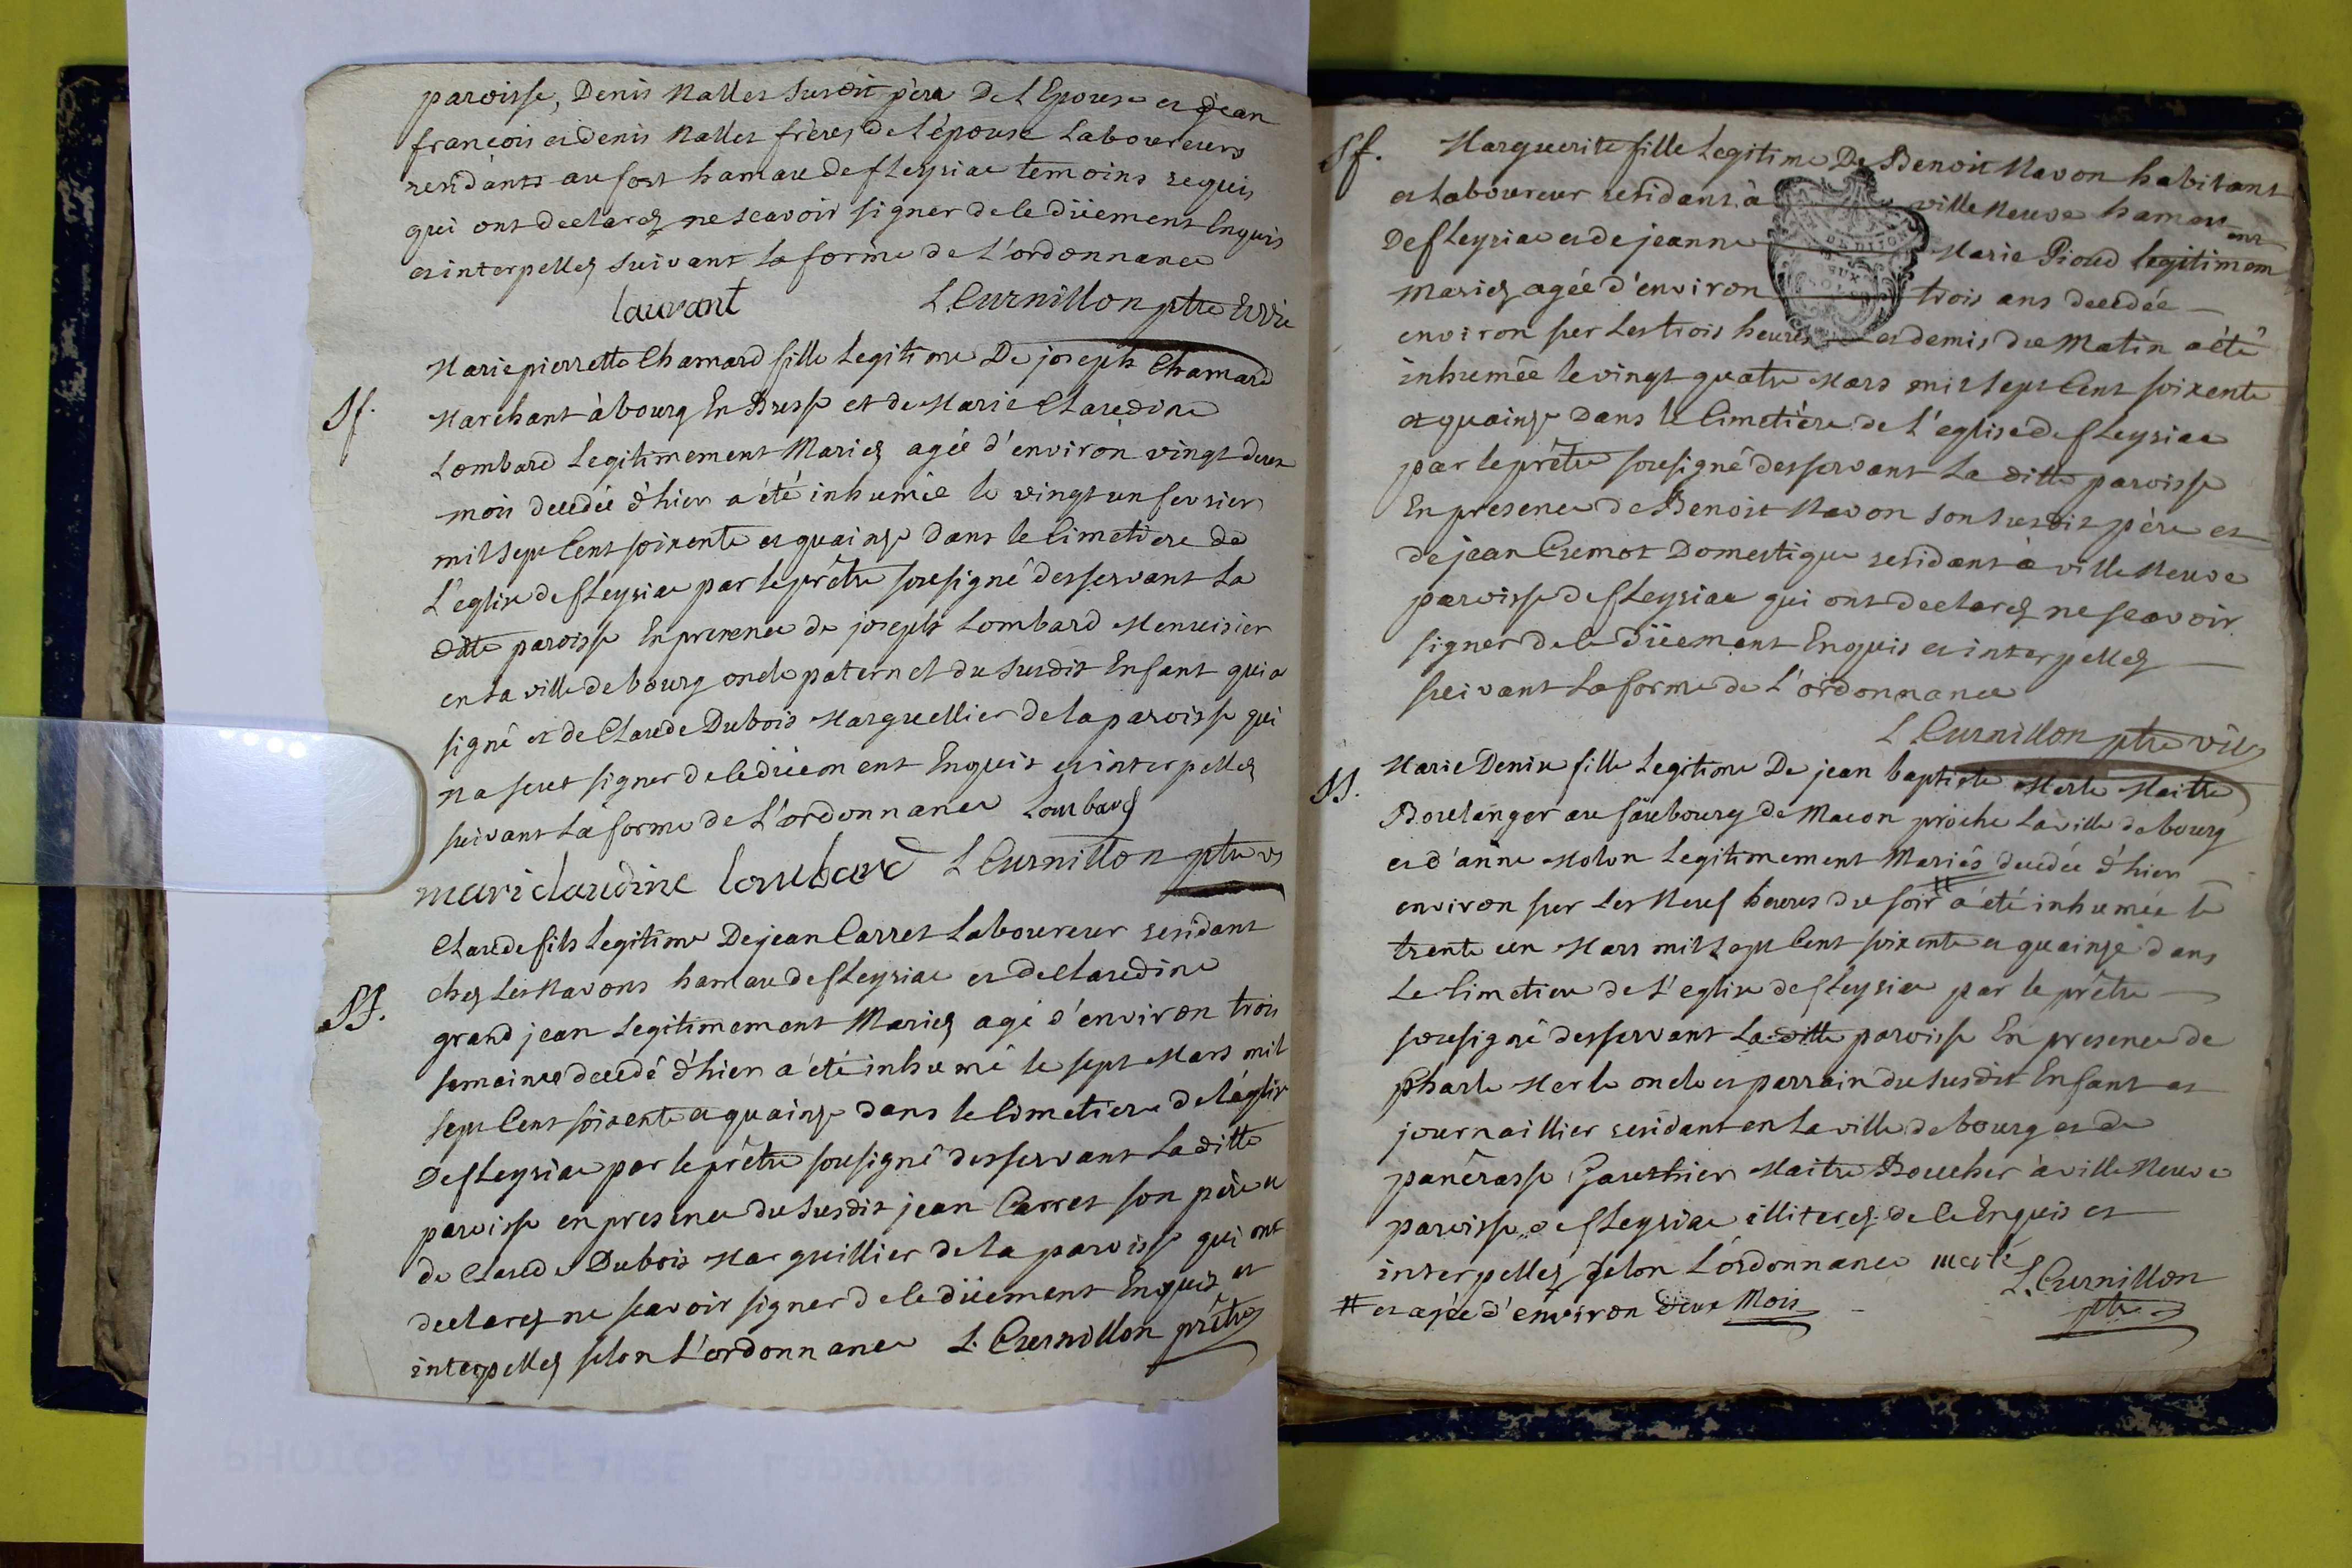 paroisse, Denis Nallet susdit père De L'Epouse et jean
françois et denis Nallet frères de l'épouse Laboureurs
residants au fort hamau de fleyriac temoins requis
qui ont declarez ne scavoir signer de ce düement Enquis
et interpellez suivant la forme de L'ordonnance
laurant L. Curnillon ptre
Marie pierrette Chamard fille Legitime De joseph Chamard
Sf.
Marchant à bourg En Bresse et de Marie Claudine
Lombard Legitimement Mariez agée d'environ vingt deux
mois decedée d'hier a été inhumée le vingt un fevrier
mil sept Cent soixente et quainze dans le Cimetiere de
L'eglise de fleyriac par le prêtre sousigné desservant La
ditte paroisse En presence de joseph Lombard Menuisier
en la ville de bourg oncle paternel du susdit Enfant qui a
signé et de Claude Dubois Marguellier de la paroisse qui
na sceut signer de ce düement Enquis et interpellez
suivant La forme de L'ordonnance Lombard
marie claudine lombard L Curnillon ptre
Claude fils Legitime De jean Carret Laboureur residant
chez Les Navons hamau de fleyriac et de Claudine
Sf.
grand jean Legitimement Mariez agé d'environ trois
semaines decedé d'hier a été inhumé le sept Mars mil
sept Cent soixente et quainze dans le Cimetiere de l'église
De fleyriac par le prêtre sousigné desservant La ditte
paroisse en presence du susdit jean Carret son père et
de Claude Dubois Marguillier de la paroisse qui ont
declarez ne scavoir signer de ce düement Enquis et
interpellez selon L'ordonnance L. Curnillon prêtre
Sf. Marguerite fille Legitime De Benoit Navon habitant
et Laboureur residant à ville Neuve hamau
De fleyriac et de jeanne Marie Pioud legitimem ent
Mariez agée d'environ trois ans decedée
environ sur Les trois heures et demis du Matin a été
inhumée le vingt quatre Mars mil sept Cent soixente
et quainze Dans le Cimetière de L'eglise de fleyriac
par le prêtre sousigné desservant La ditte paroisse
En presence de Benoit Navon son susdit père et
de jean Cremot Domestique residant à ville Neuve
paroisse de fleyriac qui ont declarez ne scavoir
signer de ce Düement Enquis et interpellez
suivant La forme de L'ordonnance
L Curnillon ptre
Marie Denise fille Legitime De jean baptiste Merle Maitre
Sf.
Boulanger au faubourg de Macon pròche La ville de bourg
et d'anne Molon Legitimement Mariés decedée d'hier
environ sur Les Neuf heures du soir # a été inhumée le
trente un Mars mil sept Cent soixente et quainze dans
Le Cimetiere de L'eglise de fleyriac par le prêtre
sousigné desservant La ditte paroisse En presence de
Charle Merle oncle et parrain du susdit Enfant et
journaillier residant en La ville de bourg et de
pancrasse Gauthier Maitre Boucher à ville Neuve
paroisse de fleyriac illiterez de ce Enquis et
interpellez selon L'ordonnance merle
L. Curnillon
# et agée d'environ deux Mois
ptre